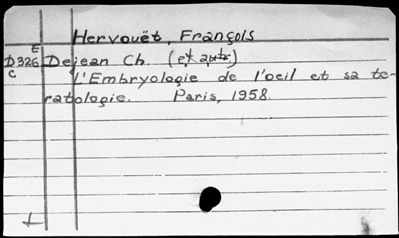 Hervouët, François
E
D326 Dejean Ch. (et autr.)
C
L'Embryologie de l'oeil et sa te-
ratologie. Paris, 1958.